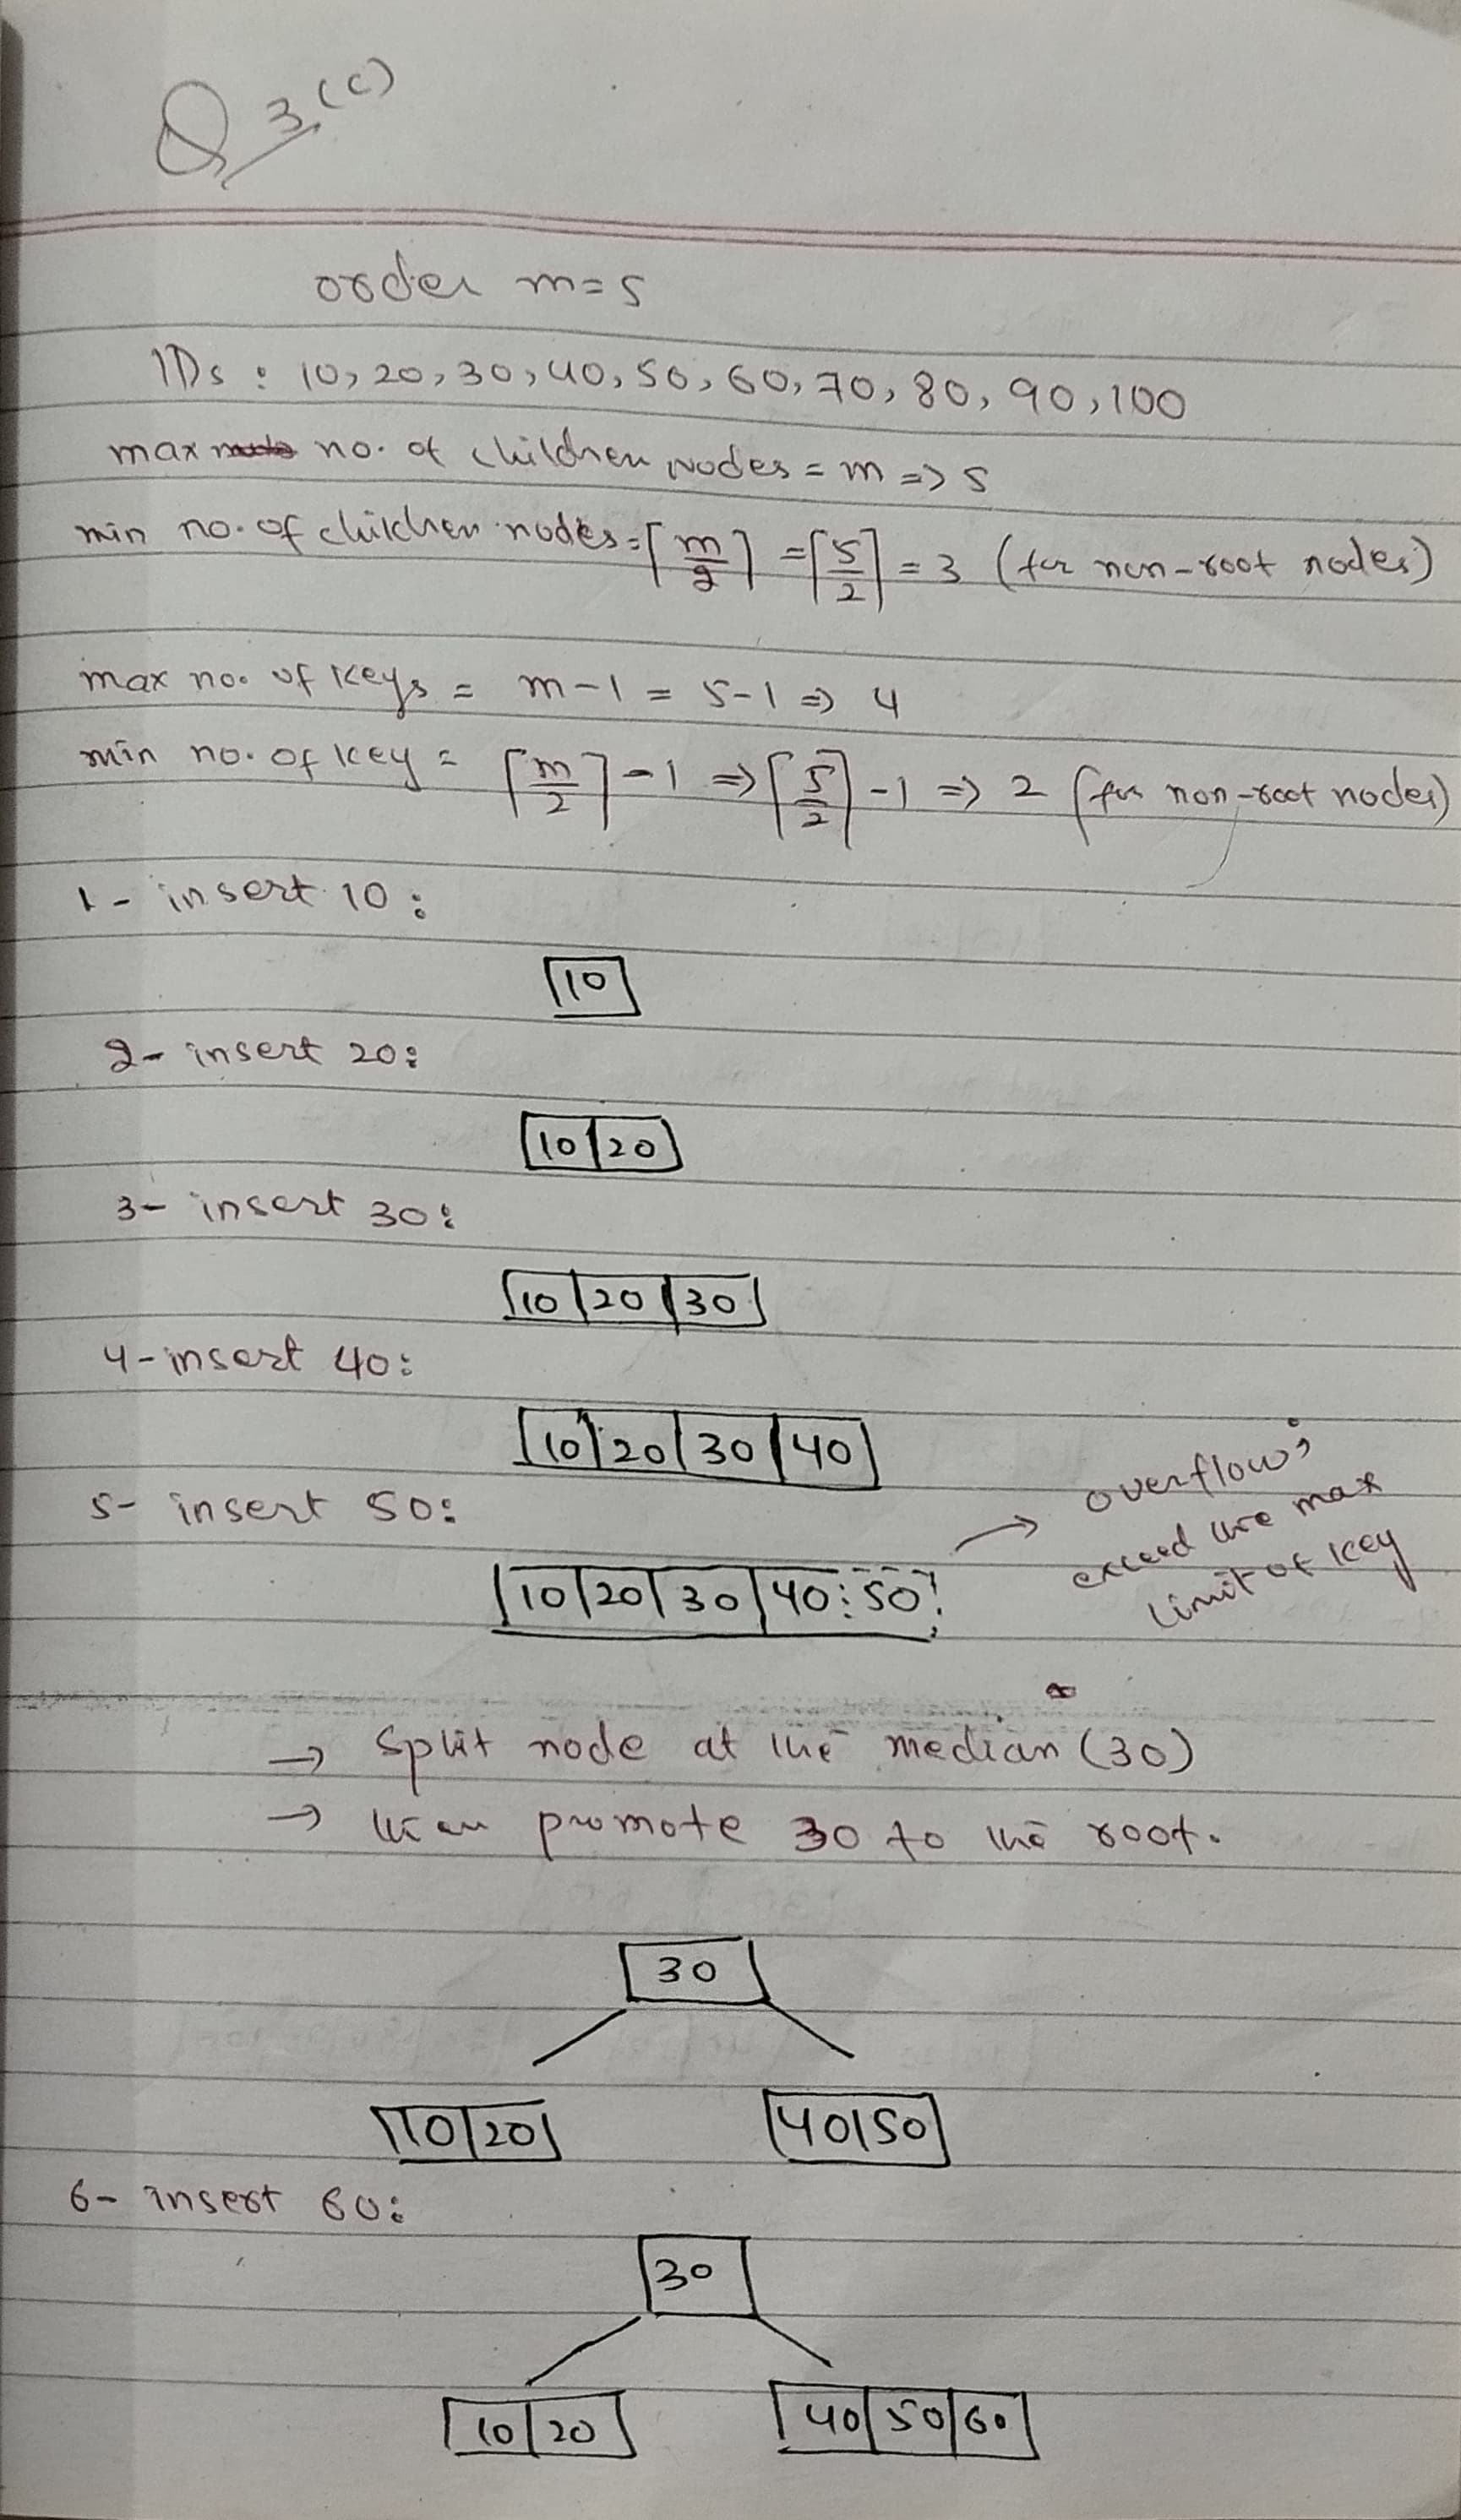 Q 3 (c)
order m=5
IDs : 10, 20, 30, 40, 50, 60, 70, 80, 90, 100
max no. of children nodes = m => 5
min no. of children nodes = ⌈m/2⌉ = ⌈5/2⌉ = 3 (for non-root nodes)
max no. of keys = m-1 = 5-1 => 4
min no. of key = ⌈m/2⌉-1 => ⌈5/2⌉-1 => 2 (for non-root nodes)
1- insert 10:
10
2- insert 20:
10 | 20
3- insert 30:
10 | 20 | 30
4- insert 40:
10 | 20 | 30 | 40
5- insert 50:
10 | 20 | 30 | 40 | 50
→ overflow,
exceed the max
limit of key
→ split node at the median (30)
→ then promote 30 to the root.
30
10 | 20 40 | 50
6- insert 60:
30
10 | 20 40 | 50 | 60